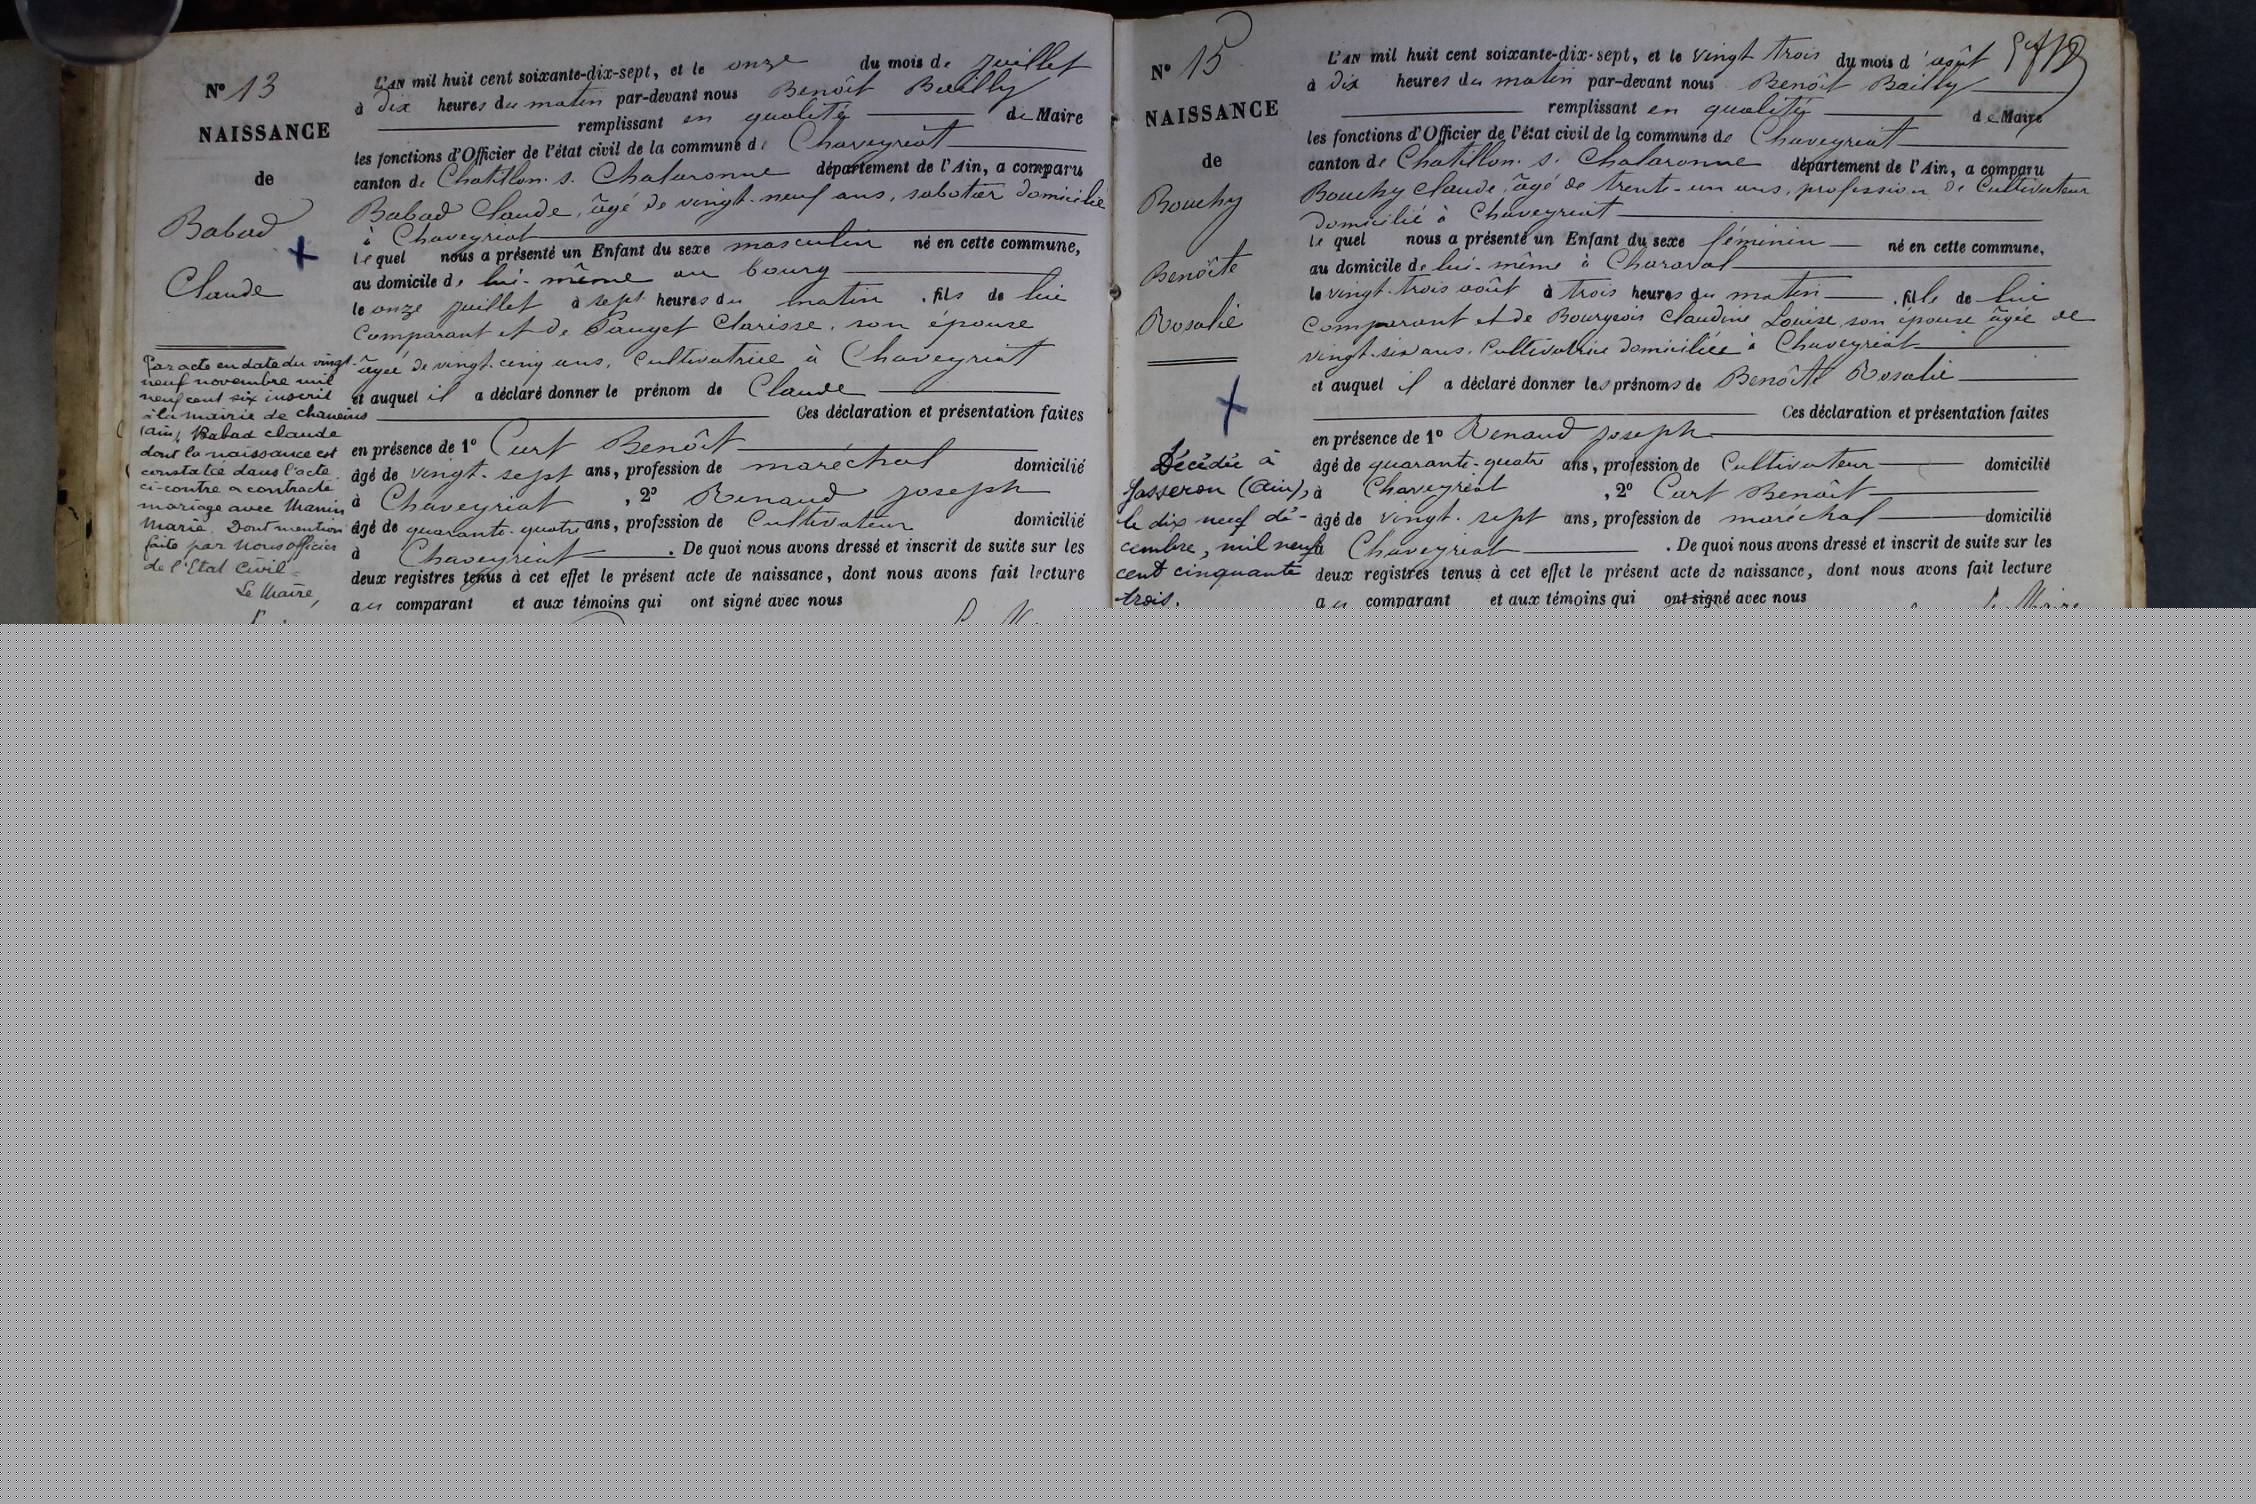 N° 13
NAISSANCE
de
Babad
Claude
Par acte en date du vingt-
neuf novembre mil
neuf cent six inscrit
à la mairie de Chaveins
(Ain) Babad Claude
dont la naissance est
constatée dans l'acte
ci-contre a contracté
mariage avec Manin
Marie. Dont mention
faite par Nous officier
de l'Etat Civil
Le Maire,
L'AN mil huit cent soixante-dix-sept, et le onze du mois de juillet
à dix heures du matin par-devant nous Benoît Bailly
remplissant en qualité de Maire
les fonctions d'Officier de l'état civil de la commune de Chaveyriat
canton de Chatillon s. Chalaronne département de l'Ain, a comparu
Babad Claude, âgé de vingt-neuf ans, sabotier domicilié
à Chaveyriat
lequel nous a présenté un Enfant du sexe masculin né en cette commune,
au domicile de lui-même au bourg
le onze juillet à sept heures du matin, fils de lui
comparant et de Pauget Clarisse, son épouse
âgée de vingt-cinq ans, cultivatrice à Chaveyriat
et auquel il a déclaré donner le prénom de Claude
Ces déclaration et présentation faites
en présence de 1° Curt Benoît
âgé de vingt-sept ans, profession de maréchal domicilié
à Chaveyriat, 2° Renaud Joseph
âgé de quarante-quatre ans, profession de Cultivateur domicilié
à Chaveyriat. De quoi nous avons dressé et inscrit de suite sur les
deux registres tenus à cet effet le présent acte de naissance, dont nous avons fait lecture
au comparant et aux témoins qui ont signé avec nous
N° 15
NAISSANCE
de
Bouchy
Benoîte
Rosalie
Décédée à
Jasseron (Ain),
le dix neuf dé-
cembre, mil neuf
cent cinquante
trois.
L'AN mil huit cent soixante-dix-sept, et le vingt trois du mois d'août
à dix heures du matin par-devant nous Benoît Bailly
remplissant en qualité de Maire
les fonctions d'Officier de l'état civil de la commune de Chaveyriat
canton de Chatillon s. Chalaronne département de l'Ain, a comparu
Bouchy Claude, âgé de trente-un ans, profession de Cultivateur
domicilié à Chaveyriat
lequel nous a présenté un Enfant du sexe féminin né en cette commune,
au domicile de lui-même à Charaval
le vingt-trois août à trois heures du matin, fille de lui
comparant et de Bourgeois Claudine Louise son épouse âgée de
vingt-six ans, Cultivatrice domiciliée à Chaveyriat
et auquel il a déclaré donner les prénoms de Benoîte Rosalie
Ces déclaration et présentation faites
en présence de 1° Renaud Joseph
âgé de quarante-quatre ans, profession de Cultivateur domicilié
à Chaveyriat, 2° Curt Benoît
âgé de vingt-sept ans, profession de maréchal domicilié
à Chaveyriat. De quoi nous avons dressé et inscrit de suite sur les
deux registres tenus à cet effet le présent acte de naissance, dont nous avons fait lecture
au comparant et aux témoins qui ont signé avec nous